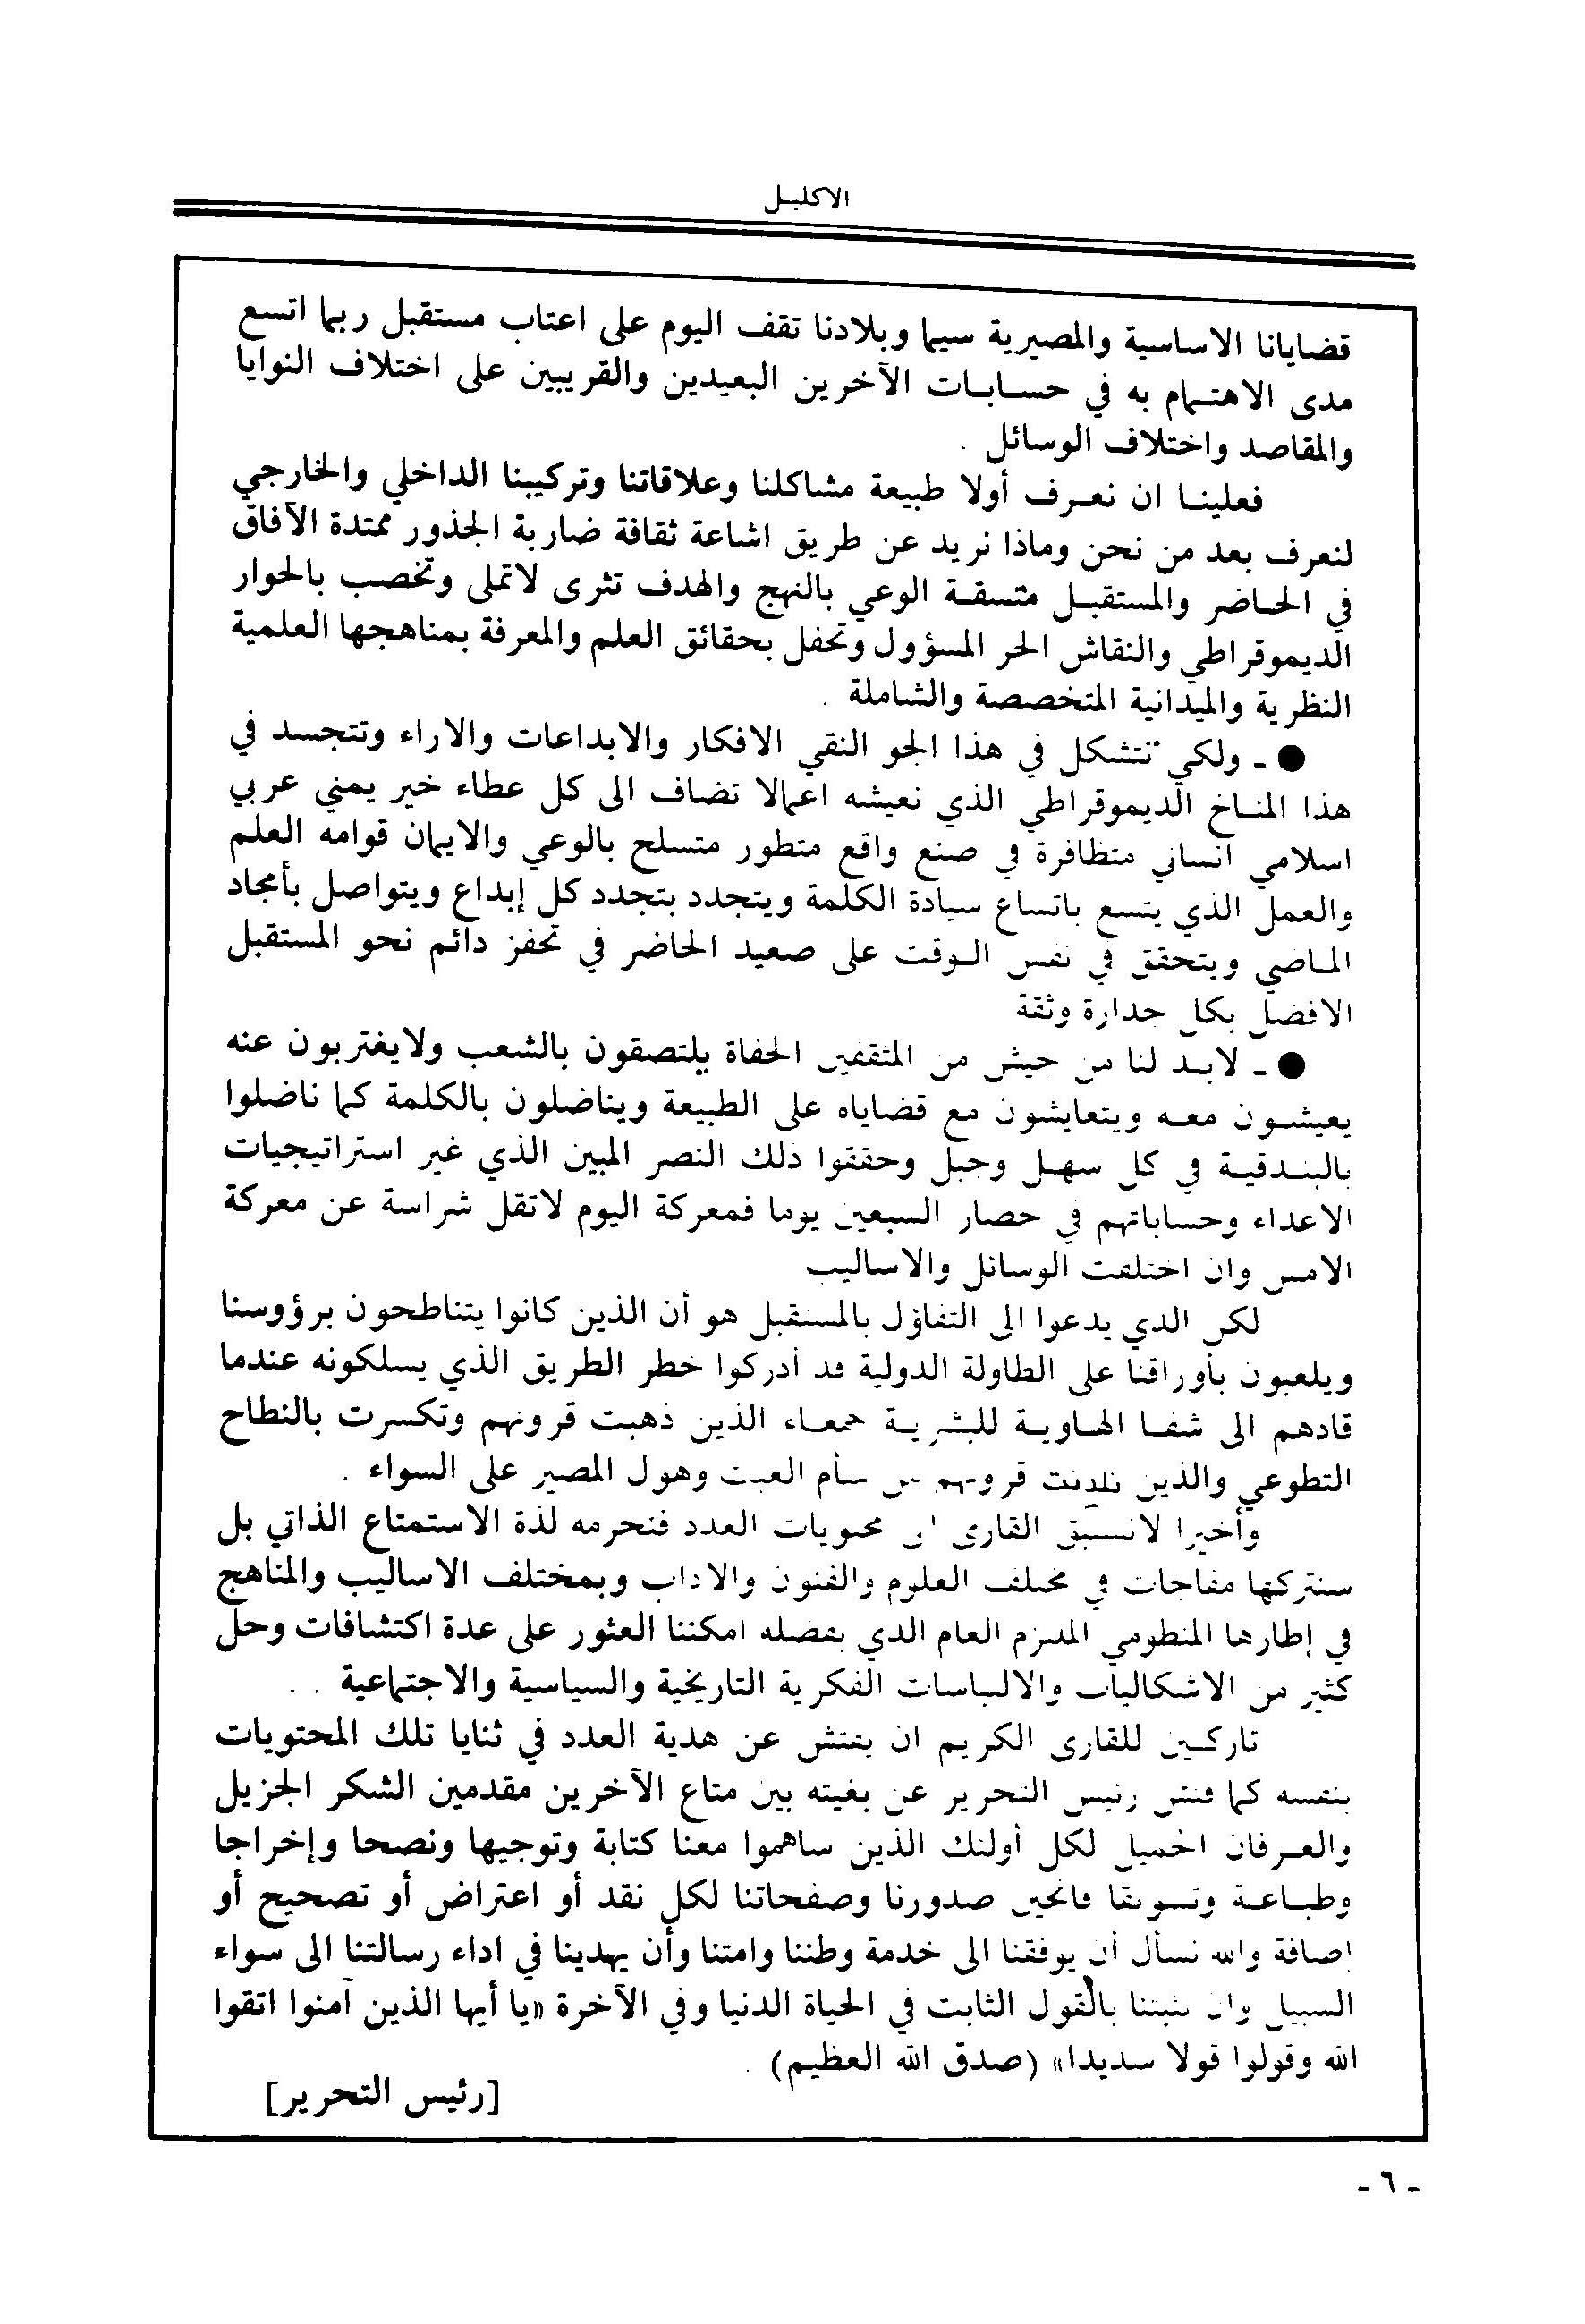 الاكليل
قضايانا الاساسية والمصيرية سيما وبلادنا تقف اليوم على اعتاب مستقبل ربما اتسع
مدى الاهتمام به في حسابات الآخرين البعيدين والقريبين على اختلاف النوايا
والمقاصد واختلاف الوسائل .
فعلينا ان نعرف أولا طبيعة مشاكلنا وعلاقاتنا وتركيبنا الداخلي والخارجي
لنعرف بعد من نحن وماذا نريد عن طريق اشاعة ثقافة ضاربة الجذور ممتدة الآفاق
في الحاضر والمستقبل متسقة الوعي بالنهج والهدف تثرى لاتملى وتخصب بالحوار
الديموقراطي والنقاش الحر المسؤول وتحفل بحقائق العلم والمعرفة بمناهجها العلمية
النظرية والميدانية المتخصصة والشاملة .
● - ولكي تتشكل في هذا الجو النقي الافكار والابداعات والاراء وتتجسد في
هذا المناخ الديموقراطي الذي نعيشه اعمالا تضاف الى كل عطاء خير يمني عربي
اسلامي انساني متظافرة في صنع واقع متطور متسلح بالوعي والايمان قوامه العلم
والعمل الذي يتسع باتساع سيادة الكلمة ويتجدد بتجدد كل إبداع ويتواصل بأمجاد
الماضي ويتحقق في نفس الوقت على صعيد الحاضر في تحفز دائم نحو المستقبل
الافضل بكل جدارة وثقة
● - لابد لنا من جيش من المثقفين الحفاة يلتصقون بالشعب ولايغتربون عنه
يعيشون معه ويتعايشون مع قضاياه على الطبيعة ويناضلون بالكلمة كما ناضلوا
بالبندقية في كل سهل وجبل وحققوا ذلك النصر المبين الذي غير استراتيجيات
الاعداء وحساباتهم في حصار السبعين يوما فمعركة اليوم لاتقل شراسة عن معركة
الامس وان اختلفت الوسائل والاساليب
لكن الذي يدعوا الى التفاؤل بالمستقبل هو أن الذين كانوا يتناطحون برؤوسنا
ويلعبون بأوراقنا على الطاولة الدولية قد أدركوا خطر الطريق الذي يسلكونه عندما
قادهم الى شفا الهاوية للبشرية جمعاء الذين ذهبت قرونهم وتكسرت بالنطاح
التطوعي والذين قرونهم من سأم العبث وهول المصير على السواء .
وأخيرا لانسبق القارى الى محتويات العدد فنحرمه لذة الاستمتاع الذاتي بل
سنتركها مفاجات في مختلف العلوم والفنون والاداب وبمختلف الاساليب والمناهج
في إطارها المنظومي الملتزم العام الذي بفضله امكننا العثور على عدة اكتشافات وحل
كثير من الاشكاليات والالتباسات الفكرية التاريخية والسياسية والاجتماعية . .
تاركين للقارى الكريم ان يفتش عن هدية العدد في ثنايا تلك المحتويات
بنفسه كما فتش رئيس التحرير عن بغيته بين متاع الآخرين مقدمين الشكر الجزيل
والعرفان الجميل لكل أولئك الذين ساهموا معنا كتابة وتوجيها ونصحا وإخراجا
وطباعة وتسويقا فاتحين صدورنا وصفحاتنا لكل نقد أو اعتراض أو تصحيح أو
إضافة والله نسأل أن يوفقنا الى خدمة وطننا وامتنا وأن يهدينا في اداء رسالتنا الى سواء
السبيل وان يثبتنا بالقول الثابت في الحياة الدنيا وفي الآخرة «يا أيها الذين آمنوا اتقوا
الله وقولوا قولا سديدا» (صدق الله العظيم) .
[رئيس التحرير]
- ٦ -